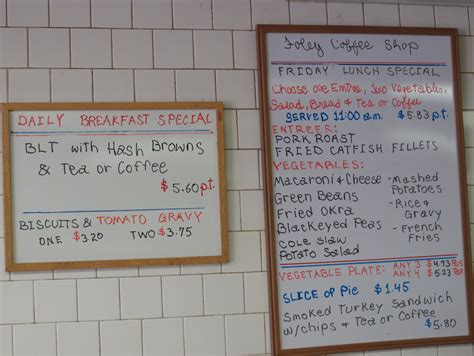 DAILY BREAKFAST SPECIAL
BLT with Hash Browns
& Tea or Coffee
$5.60 p.t.
BISCUITS & TOMATO GRAVY
ONE $3.20 TWO $3.75
Foley Coffee Shop
FRIDAY LUNCH SPECIAL
Choose one Entree, two Vegetables,
Salad, Bread & Tea or Coffee
SERVED 11:00 a.m. $5.83 p.t.
ENTREES:
PORK ROAST
FRIED CATFISH FILLETS
VEGETABLES:
Macaroni & Cheese - Mashed
Potatoes
Green Beans - Rice &
Gravy
Fried Okra
Blackeyed Peas - French
Fries
Cole Slaw
Potato Salad
VEGETABLE PLATE: ANY 3 $4.73 PLUS
ANY 4 $5.23 TAX
SLICE of Pie $1.45
Smoked Turkey Sandwich
w/chips & Tea or Coffee
$5.80